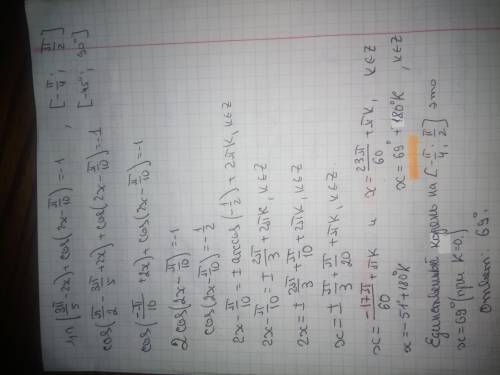 sin(3π/5 - 2x) + cos(2x - π/10) = -1 , [-π/4; π/2]
cos(π/2 - 3π/5 + 2x) + cos(2x - π/10) = -1 [-45°; 90°]
cos(-π/10 + 2x) + cos(2x - π/10) = -1
2cos(2x - π/10) = -1
cos(2x - π/10) = -1/2
2x - π/10 = ± arccos(-1/2) + 2πK, K∈Z
2x - π/10 = ± 2π/3 + 2πK, K∈Z
2x = ± 2π/3 + π/10 + 2πK, K∈Z
x = ± π/3 + π/20 + πK, K∈Z
x = -17π/60 + πK и x = 23π/60 + πK, K∈Z
x = -51° + 180°K x = 69° + 180°K , K∈Z
Единственный корень на [-π/4; π/2] это
x = 69° (при K=0.)
Ответ: 69°.